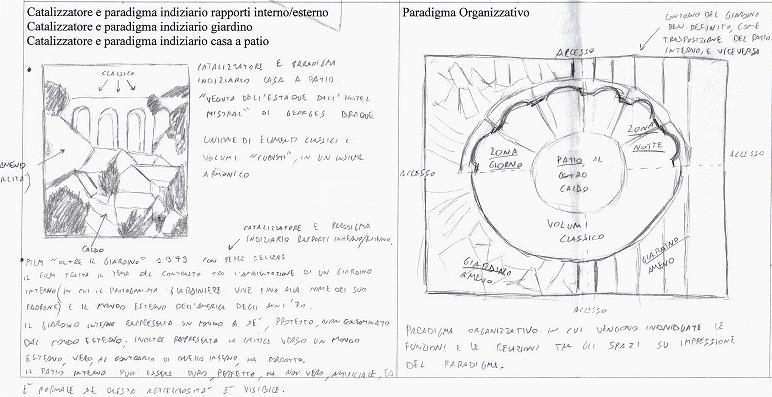 Catalizzatore e paradigma indiziario rapporti interno/esterno
Catalizzatore e paradigma indiziario giardino
Catalizzatore e paradigma indiziario casa a patio
CLASSICO
CATALIZZATORE E PARADIGMA
INDIZIARIO CASA A PATIO.
"VEDUTA DELL'ESTAQUE DALL'HOTEL
MISTRAL" DI GEORGES BRAQUE
UNIONE DI ELEMENTI CLASSICI E
VOLUMI "CUBISTI", IN UN INSIEME
ARMONICO
AMENO
CALDO
CATALIZZATORE E PARADIGMA
INDIZIARIO RAPPORTI INTERNO/ESTERNO.
FILM "OLTRE IL GIARDINO" 1979 CON PETER SELLERS
IL FILM TRATTA IL TEMA DEL CONTRASTO TRA L'AMBIENTAZIONE DI UN GIARDINO
INTERNO (IN CUI IL PROTAGONISTA GIARDINIERE VIVE FINO ALLA MORTE DEL SUO
PADRONE) E IL MONDO ESTERNO DELL'AMERICA DEGLI ANNI '70.
IL GIARDINO INTERNO RAPPRESENTA UN MONDO A SE', PROTETTO, NON CONTAMINATO
DAL MONDO ESTERNO, INOLTRE RAPPRESENTA LA CRITICA VERSO UN MONDO
ESTERNO, VERO, AL CONTRARIO DI QUELLO INTERNO, MA CORROTTO.
IL PATIO INTERNO PUO' ESSERE PURO, PERFETTO, MA NON VERO, ARTIFICIALE, ED
E' NORMALE SE QUESTA ARTIFICIOSITA' E' VISIBILE.
Paradigma Organizzativo
CONTORNO DEL GIARDINO
BEN DEFINITO, COME
TRASPOSIZIONE DEL PATIO
INTERNO, E VICEVERSA
ACCESSO
ZONA
GIORNO
ZONA
NOTTE
PATIO, AL
CENTRO
CALDO
ACCESSO
ACCESSO
VOLUMI
CLASSICO
GIARDINO
AMENO
GIARDINO
AMENO
ACCESSO
PARADIGMA ORGANIZZATIVO IN CUI VENGONO INDIVIDUATE LE
FUNZIONI E LE RELAZIONI TRA GLI SPAZI SU IMPRESSIONE
DEL PARADIGMA.